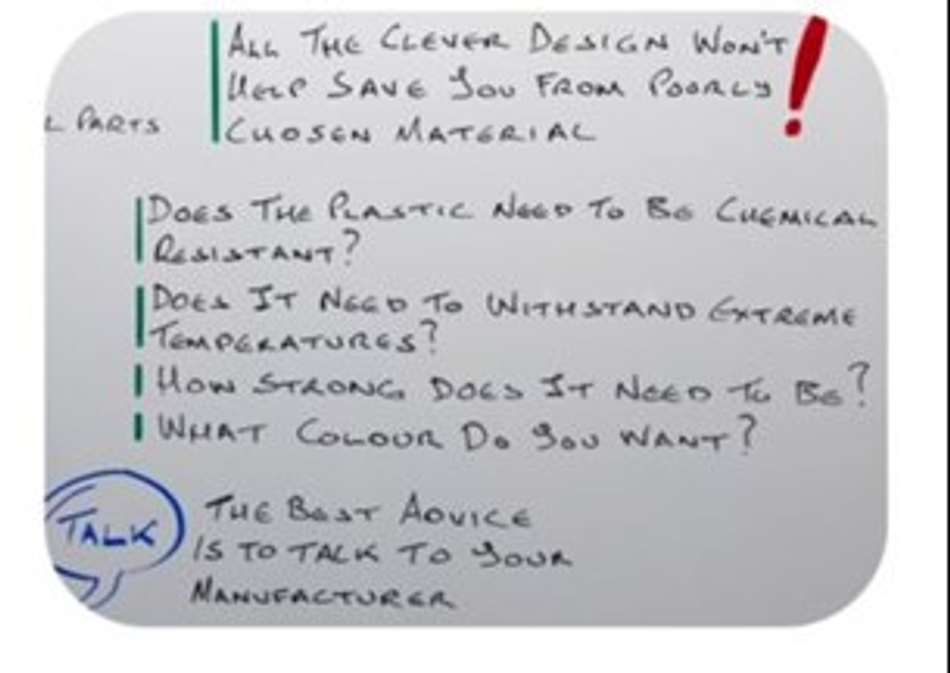 All The Clever Design Won't
Help Save You From Poorly
Chosen Material
L Parts
Does The Plastic Need To Be Chemical
Resistant?
Does It Need To Withstand Extreme
Temperatures?
How Strong Does It Need To Be?
What Colour Do You Want?
TALK
The Best Advice
Is To Talk To Your
Manufacturer